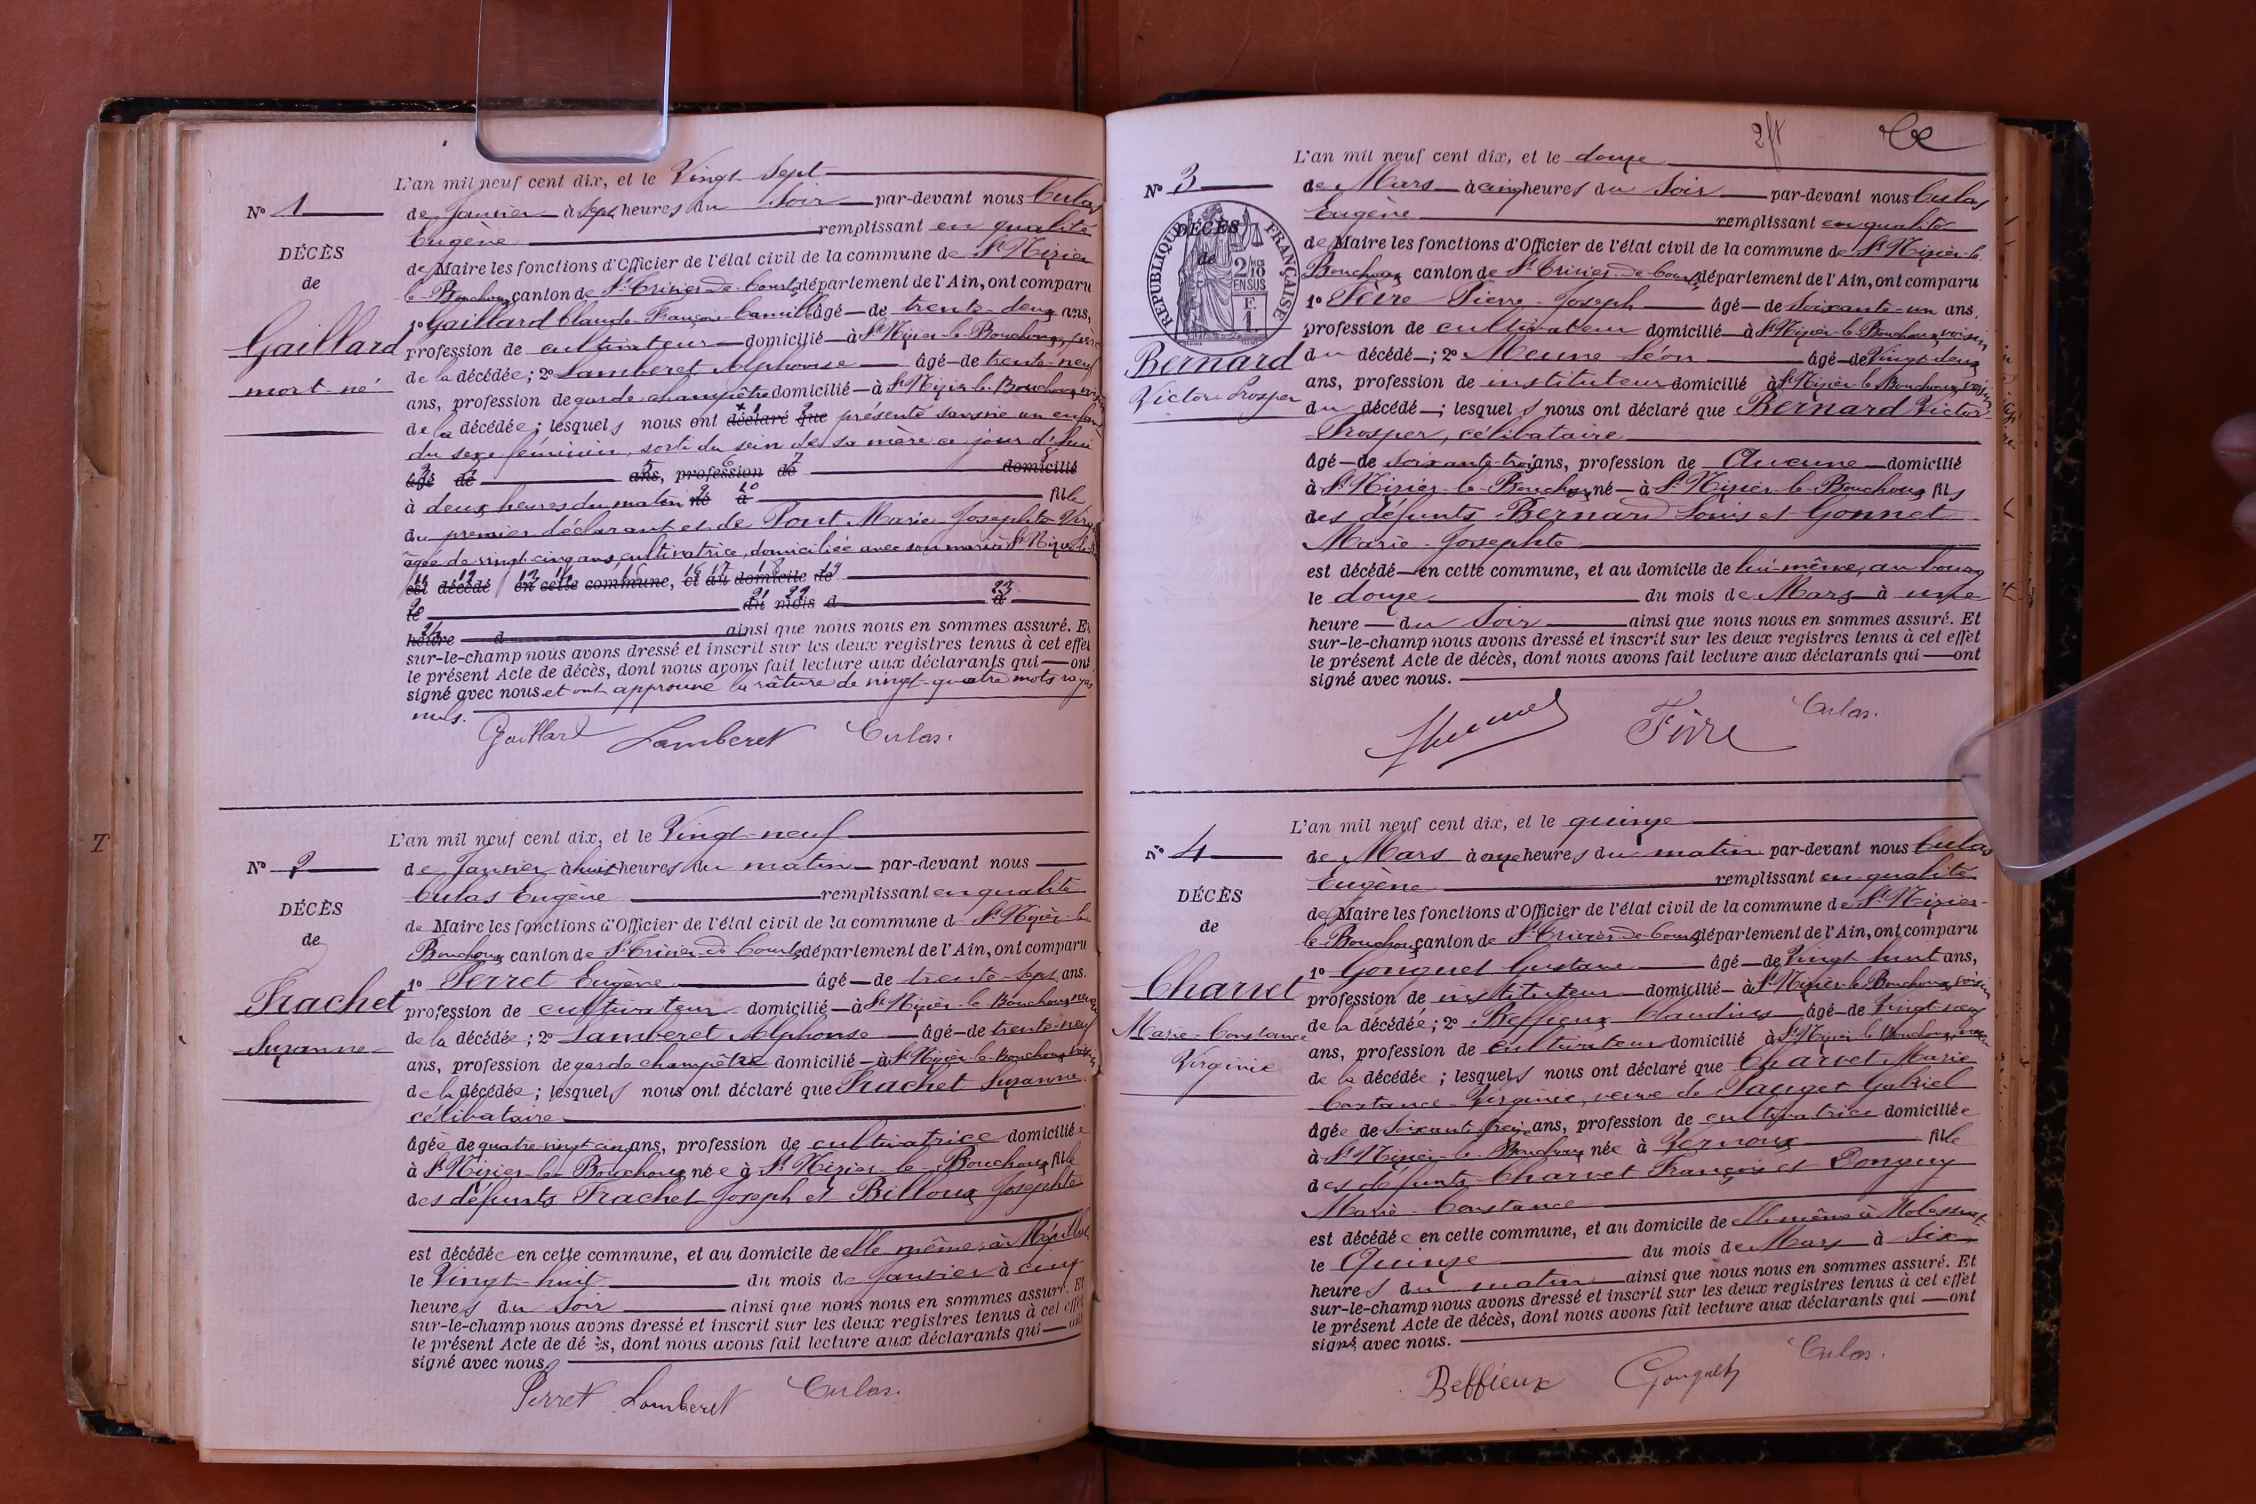 L'an mil neuf cent dix, et le Vingt-Sept
N° 1
de Janvier à Sept heures du Soir par-devant nous Culas
Eugène remplissant en qualité
DÉCÈS
de Maire les fonctions d'Officier de l'état civil de la commune de St Nizier
de
le-Bouchoux canton de St Trivier-de-Courtes département de l'Ain, ont comparu
1° Gaillard Claude-François-Camille âgé de trente-deux ans,
Gaillard
mort-né
profession de cultivateur domicilié à St Nizier-le-Bouchoux, père
de la décédée; 2° Lamberet Alphonse âgé de trente-neuf
ans, profession de garde champêtre domicilié à St Nizier-le-Bouchoux, voisin
de la décédée; lesquels nous ont déclaré que présenté sans vie un enfant
du sexe féminin, sorti du sein de sa mère ce jour d'hui
âgé de ans, profession de domicilié
à deux heures du matin né à fille
du premier déclarant et de Pont Marie Josephte
âgée de vingt-cinq ans, cultivatrice, domiciliée avec son mari à St Nizier
est décédé en cette commune, et au domicile de
le du mois d à
heure d ainsi que nous nous en sommes assuré. Et
sur-le-champ nous avons dressé et inscrit sur les deux registres tenus à cet effet
le présent Acte de décès, dont nous avons fait lecture aux déclarants qui ont
signé avec nous et ont approuvé la râture de vingt-quatre mots rayés
nuls.
Gaillard Lamberet Culas.
L'an mil neuf cent dix, et le Vingt-neuf
N° 2
de Janvier à huit heures du matin par-devant nous
Culas Eugène remplissant en qualité
DÉCÈS
de Maire les fonctions d'Officier de l'état civil de la commune de St Nizier-le-
de
Bouchoux canton de St Trivier-de-Courtes département de l'Ain, ont comparu
1° Perret Eugène âgé de trente-sept ans.
Frachet
Suzanne
profession de cultivateur domicilié à St Nizier-le-Bouchoux, neveu
de la décédée; 2° Lamberet Alphonse âgé de trente-neuf
ans, profession de garde champêtre domicilié à St Nizier-le-Bouchoux, voisin
de la décédée; lesquels nous ont déclaré que Frachet Suzanne
célibataire
âgée de quatre vingt cinq ans, profession de cultivatrice domiciliée
à St Nizier-le-Bouchoux née à St Nizier-le-Bouchoux fille
des défunts Frachet Joseph et Billoux Josephte
est décédée en cette commune, et au domicile de elle même, à
le Vingt-huit du mois de Janvier à cinq
heures du Soir ainsi que nous nous en sommes assuré. Et
sur-le-champ nous avons dressé et inscrit sur les deux registres tenus à cet effet
le présent Acte de décès, dont nous avons fait lecture aux déclarants qui ont
signé avec nous.
Perret Lamberet Culas.
L'an mil neuf cent dix, et le douze
N° 3
de Mars à cinq heures du Soir par-devant nous Culas
Eugène remplissant en qualité
DÉCÈS
de
RÉPUBLIQUE FRANÇAISE
2/10 EN SUS
F. 1
de Maire les fonctions d'Officier de l'état civil de la commune de St Nizier-le-
Bouchoux canton de St Trivier-de-Courtes département de l'Ain, ont comparu
1° Fèvre Pierre-Joseph âgé de Soixante-un ans.
profession de cultivateur domicilié à St Nizier-le-Bouchoux, voisin
Bernard
Victor Prosper
du décédé; 2° Meune Léon âgé de Vingt-deux
ans, profession de instituteur domicilié à St Nizier-le-Bouchoux, voisin
du décédé; lesquels nous ont déclaré que Bernard Victor-
Prosper, célibataire
âgé de Soixante-trois ans, profession de Aucune domicilié
à St Nizier-le-Bouchoux né à St Nizier-le-Bouchoux fils
des défunts Bernard Louis et Gonnet
Marie-Josephte
est décédé en cette commune, et au domicile de lui-même, au bourg
le douze du mois de Mars à une
heure du Soir ainsi que nous nous en sommes assuré. Et
sur-le-champ nous avons dressé et inscrit sur les deux registres tenus à cet effet
le présent Acte de décès, dont nous avons fait lecture aux déclarants qui ont
signé avec nous.
Culas.
L'an mil neuf cent dix, et le quinze
N° 4
de Mars à onze heures du matin par-devant nous Culas
Eugène remplissant en qualité
DÉCÈS
de Maire les fonctions d'Officier de l'état civil de la commune de St Nizier-
de
le-Bouchoux canton de St Trivier-de-Courtes département de l'Ain, ont comparu
1° Gonguet Gustave âgé de Vingt-huit ans,
Charvet
Marie-Constance
Virginie
profession de instituteur domicilié à St Nizier-le-Bouchoux, voisin
de la décédée; 2° Beffieux Claudius âgé de Vingt-
ans, profession de cultivateur domicilié à St Nizier-le-Bouchoux,
de la décédée; lesquels nous ont déclaré que Charvet Marie
Constance-Virginie, veuve de Pauget Gabriel
âgée de Soixante-treize ans, profession de cultivatrice domiciliée
à St Nizier-le-Bouchoux née à Vernoux fille
des défunts Charvet François et Donguy
Marie-Constance
est décédée en cette commune, et au domicile de elle même à
le Quinze du mois de Mars à Six
heures du matin ainsi que nous nous en sommes assuré. Et
sur-le-champ nous avons dressé et inscrit sur les deux registres tenus à cet effet
le présent Acte de décès, dont nous avons fait lecture aux déclarants qui ont
signé avec nous.
Beffieux Gonguet Culas.